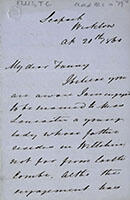 Seapark
Wicklow
Ap 20th 1860
My dear Fanny
I believe you
are aware I am engaged
to be married to Miss
Lancaster a young
lady whose father
resides in Wiltshire
not far from Castle
Combe. Altho the
engagement has